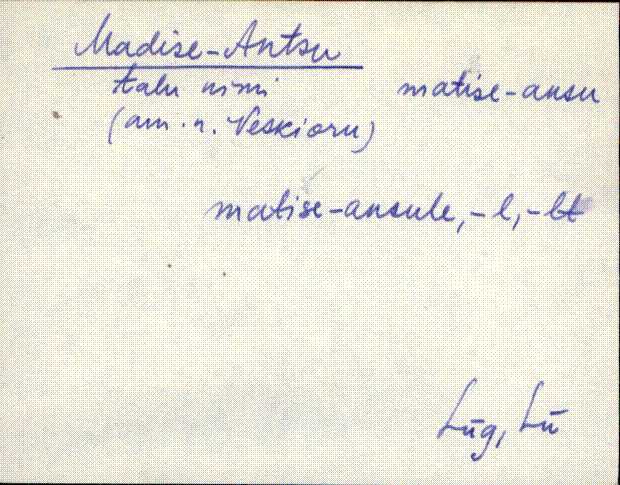 Madise-Antsu
talu nimi matise-ansu
(am. n. Veskioru)
matise-ansule, -l, -lt
Lüg, Lü